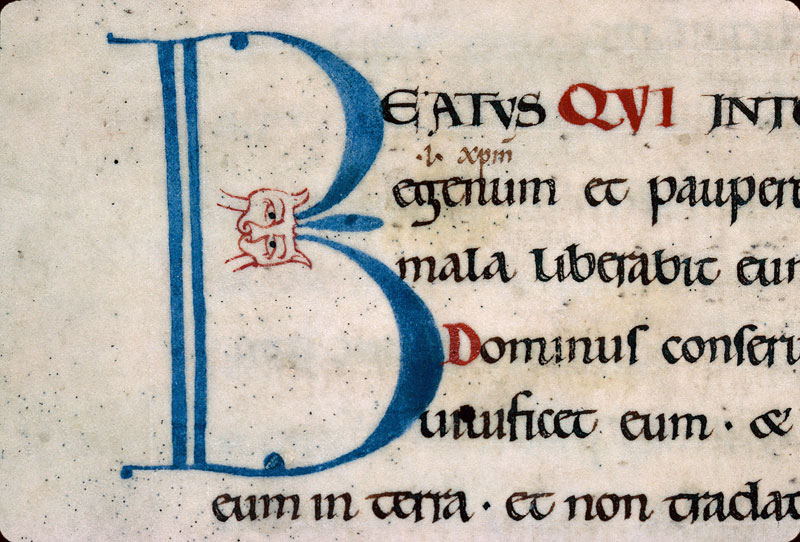 BEATVS QVI INTE
.i. xpm
egenum et pauper
mala liberabit eum
Dominus conserv
uiuificet eum · &
eum in terra · et non tradat